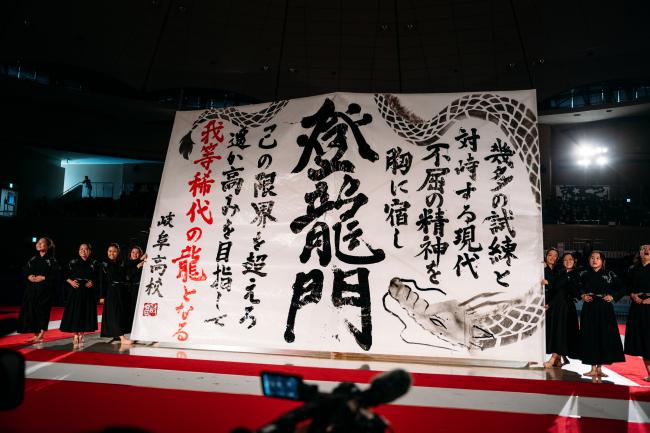 幾多の試練と
対峙する現代
不屈の精神を
胸に宿し
登龍門
己の限界を超えろ
遙か高みを目指して
我等稀代の龍となる
岐阜高校